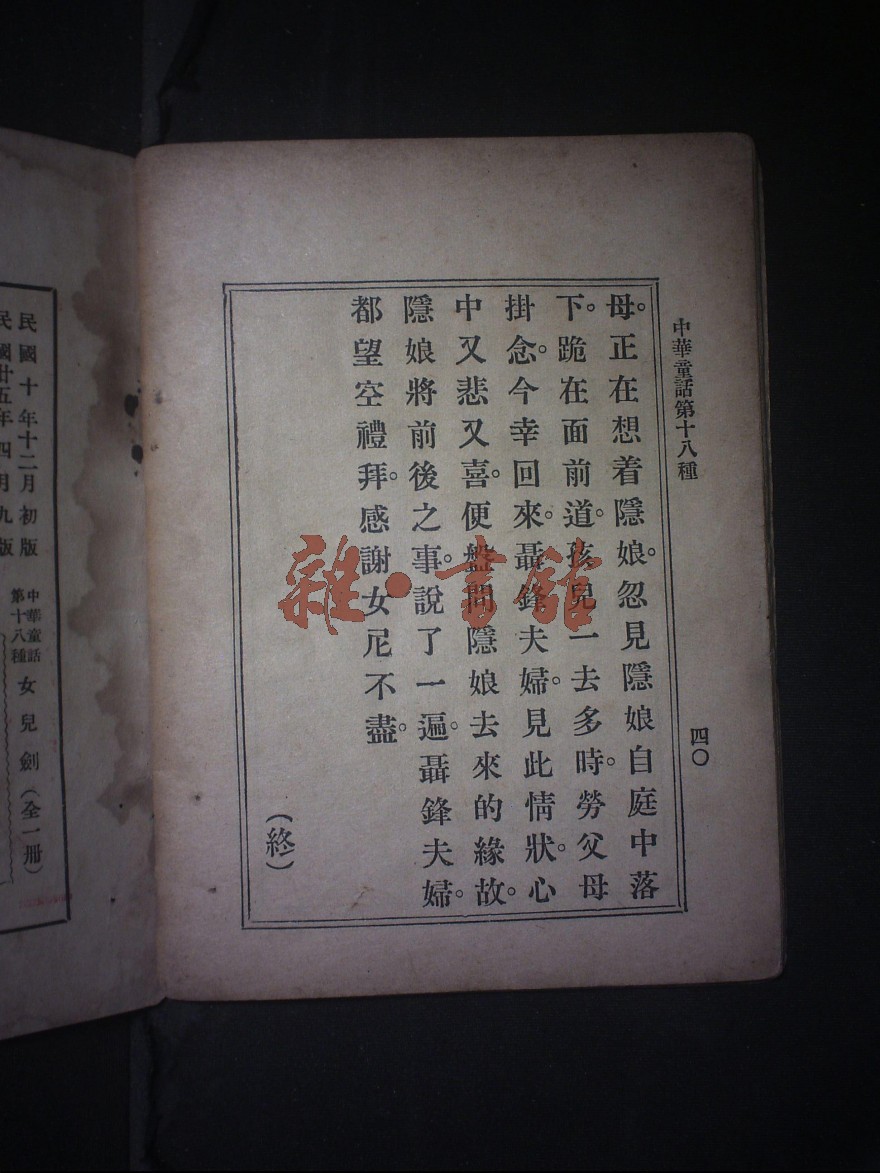 中華童話第十八種
四〇
母。正在想着隱娘。忽見隱娘自庭中落
下。跪在面前道。孩兒一去多時。勞父母
掛念。今幸回來。聶鋒夫婦。見此情狀。心
中又悲又喜。便盤問隱娘去來的緣故。
隱娘將前後之事。說了一遍。聶鋒夫婦。
都望空禮拜。感謝女尼不盡。
(終)
雜·書館
民國十年十二月初版
民國廿五年四月九版
中華童話
第十八種
女兒劍(全一冊)